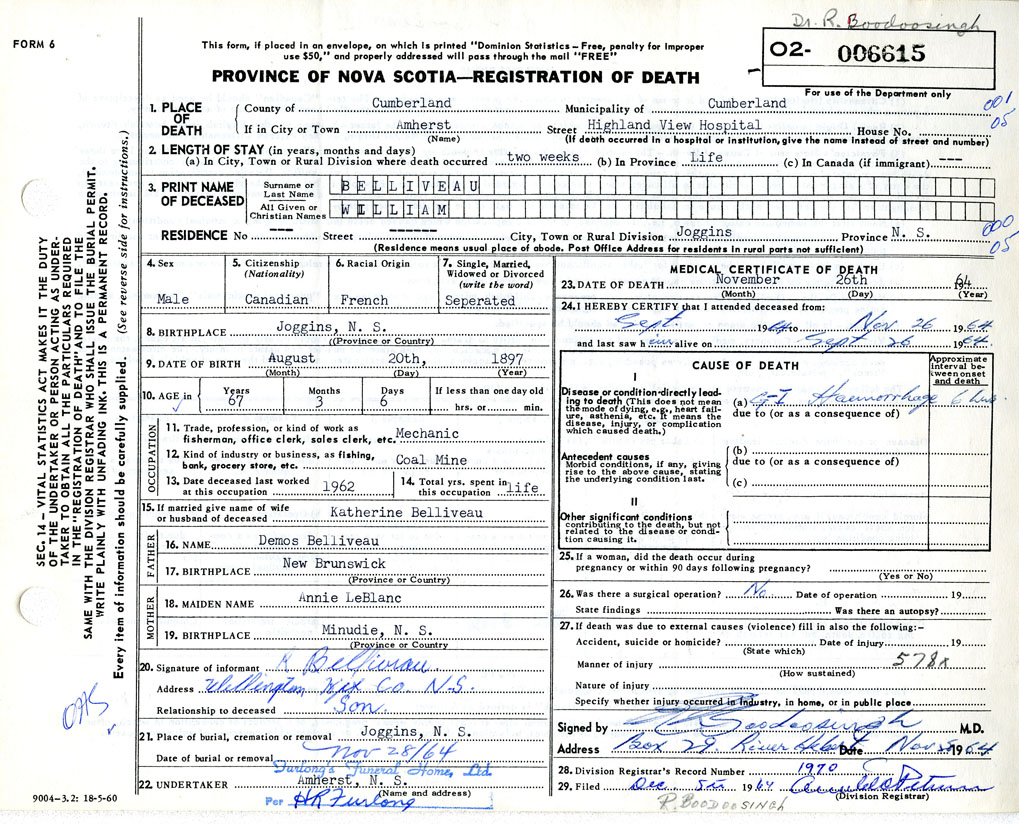 Dr. R. Boodoosingh
FORM 6
This form, if placed in an envelope, on which is printed "Dominion Statistics – Free, penalty for improper
use $50," and properly addressed will pass through the mail "FREE"
PROVINCE OF NOVA SCOTIA—REGISTRATION OF DEATH
02- 006615
For use of the Department only
1. PLACE OF DEATH County of Cumberland Municipality of Cumberland 001
If in City or Town Amherst Street Highland View Hospital House No. 05
(Name) (If death occurred in a hospital or institution, give the name instead of street and number)
2. LENGTH OF STAY (in years, months and days)
(a) In City, Town or Rural Division where death occurred two weeks (b) In Province Life (c) In Canada (if immigrant) ---
3. PRINT NAME OF DECEASED
Surname or Last Name BELLIVEAU
All Given or Christian Names WILLIAM
RESIDENCE No --- Street ------ City, Town or Rural Division Joggins Province N. S. 000
05
(Residence means usual place of abode. Post Office Address for residents in rural parts not sufficient)
4. Sex Male
5. Citizenship (Nationality) Canadian
6. Racial Origin French
7. Single, Married, Widowed or Divorced (write the word) Seperated
8. BIRTHPLACE Joggins, N. S.
((Province or Country)
9. DATE OF BIRTH August 20th, 1897
(Month) (Day) (Year)
10. AGE in Years 67 Months 3 Days 6 If less than one day old hrs. or min.
OCCUPATION
11. Trade, profession, or kind of work as
fisherman, office clerk, sales clerk, etc. Mechanic
12. Kind of industry or business, as fishing,
bank, grocery store, etc. Coal Mine
13. Date deceased last worked at this occupation 1962
14. Total yrs. spent in this occupation life
15. If married give name of wife
or husband of deceased Katherine Belliveau
FATHER
16. NAME Demos Belliveau
17. BIRTHPLACE New Brunswick
(Province or Country)
MOTHER
18. MAIDEN NAME Annie LeBlanc
19. BIRTHPLACE Minudie, N. S.
(Province or Country)
20. Signature of informant K Belliveau
Address Wellington Hfx Co. N.S.
Relationship to deceased Son
21. Place of burial, cremation or removal Joggins, N. S.
Date of burial or removal Nov 28/64
Furlong's Funeral Home, Ltd.
22. UNDERTAKER Amherst, N. S.
(Name and address)
Per HR Furlong
9004–3.2: 18-5-60
MEDICAL CERTIFICATE OF DEATH
23. DATE OF DEATH November 26th 64
(Month) (Day) (Year)
24. I HEREBY CERTIFY that I attended deceased from:
Sept. 1964 to Nov 26 1964
and last saw h alive on Sept 26 1964
CAUSE OF DEATH
Approximate interval between onset and death
I
Disease or condition directly leading to death (This does not mean the mode of dying, e.g., heart failure, asthenia, etc. It means the disease, injury, or complication which caused death.)
(a) G-I Haemorrhage 6 hrs.
due to (or as a consequence of)
Antecedent causes
Morbid conditions, if any, giving rise to the above cause, stating the underlying condition last.
(b)
due to (or as a consequence of)
(c)
II
Other significant conditions
contributing to the death, but not related to the disease or condition causing it.
25. If a woman, did the death occur during
pregnancy or within 90 days following pregnancy?
(Yes or No)
26. Was there a surgical operation? No Date of operation 19
State findings Was there an autopsy?
27. If death was due to external causes (violence) fill in also the following:-
Accident, suicide or homicide? Date of injury 19
(State which)
Manner of injury 578x
(How sustained)
Nature of injury
Specify whether injury occurred in industry, in home, or in public place
Signed by R Boodoosingh M.D.
Address Box 29. River Hebert Date Nov 1964
28. Division Registrar's Record Number 1970
29. Filed Dec. 5th 1964
(Division Registrar)
R. BOODOOSINGH
SEC. 14 – VITAL STATISTICS ACT MAKES IT THE DUTY
OF THE UNDERTAKER OR PERSON ACTING AS UNDER-
TAKER TO OBTAIN ALL THE PARTICULARS REQUIRED
IN THE "REGISTRATION OF DEATH" AND TO FILE THE
SAME WITH THE DIVISION REGISTRAR WHO SHALL ISSUE THE BURIAL PERMIT.
WRITE PLAINLY WITH UNFADING INK. THIS IS A PERMANENT RECORD.
Every item of information should be carefully supplied. (See reverse side for instructions.)